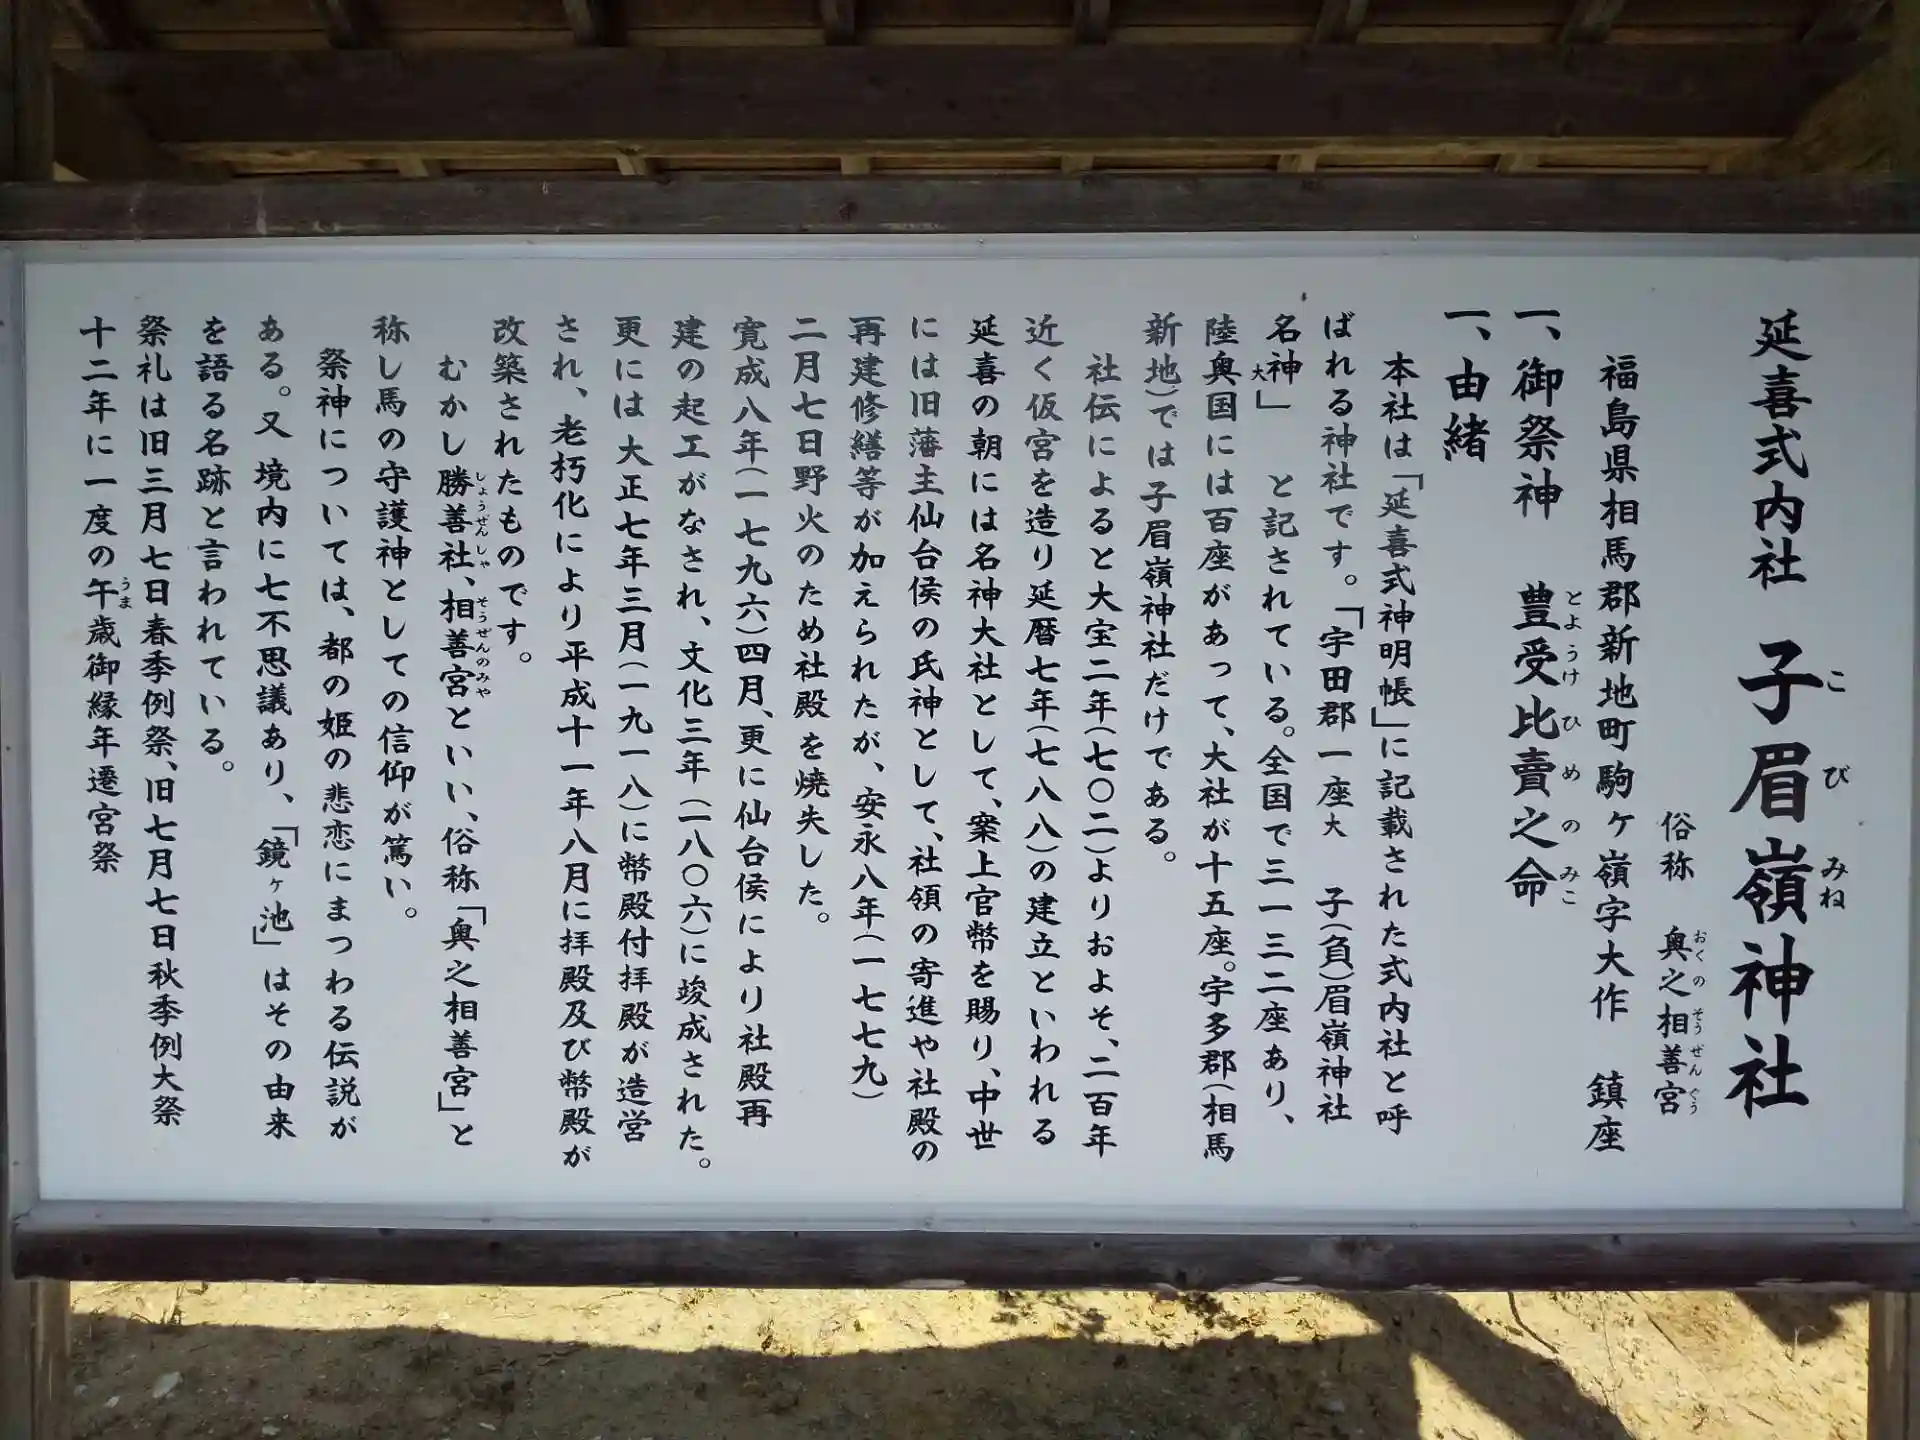 延喜式内社　子眉嶺神社
こ　び　みね
俗称　奥之相善宮
おくの　そうぜんぐう
福島県相馬郡新地町駒ヶ嶺字大作　鎮座
一、御祭神　豊受比賣之命
とようけひめのみこ
一、由緒
本社は「延喜式神明帳」に記載された式内社と呼
ばれる神社です。「宇田郡一座大　子(負)眉嶺神社
名神大」　と記されている。全国で三一三二座あり、
陸奥国には百座があって、大社が十五座。宇多郡(相馬
新地)では子眉嶺神社だけである。
社伝によると大宝二年(七〇二)よりおよそ、二百年
近く仮宮を造り延暦七年(七八八)の建立といわれる
延喜の朝には名神大社として、案上官幣を賜り、中世
には旧藩主仙台侯の氏神として、社領の寄進や社殿の
再建修繕等が加えられたが、安永八年(一七七九)
二月七日野火のため社殿を焼失した。
寛成八年(一七九六)四月、更に仙台侯により社殿再
建の起工がなされ、文化三年(一八〇六)に竣成された。
更には大正七年三月(一九一八)に幣殿付拝殿が造営
され、老朽化により平成十一年八月に拝殿及び幣殿が
改築されたものです。
むかし勝善社、相善宮といい、俗称「奥之相善宮」と
しょうぜんしゃ　そうぜんのみや
称し馬の守護神としての信仰が篤い。
祭神については、都の姫の悲恋にまつわる伝説が
ある。又境内に七不思議あり、「鏡ヶ池」はその由来
を語る名跡と言われている。
祭礼は旧三月七日春季例祭、旧七月七日秋季例大祭
十二年に一度の午歳御縁年遷宮祭
うま